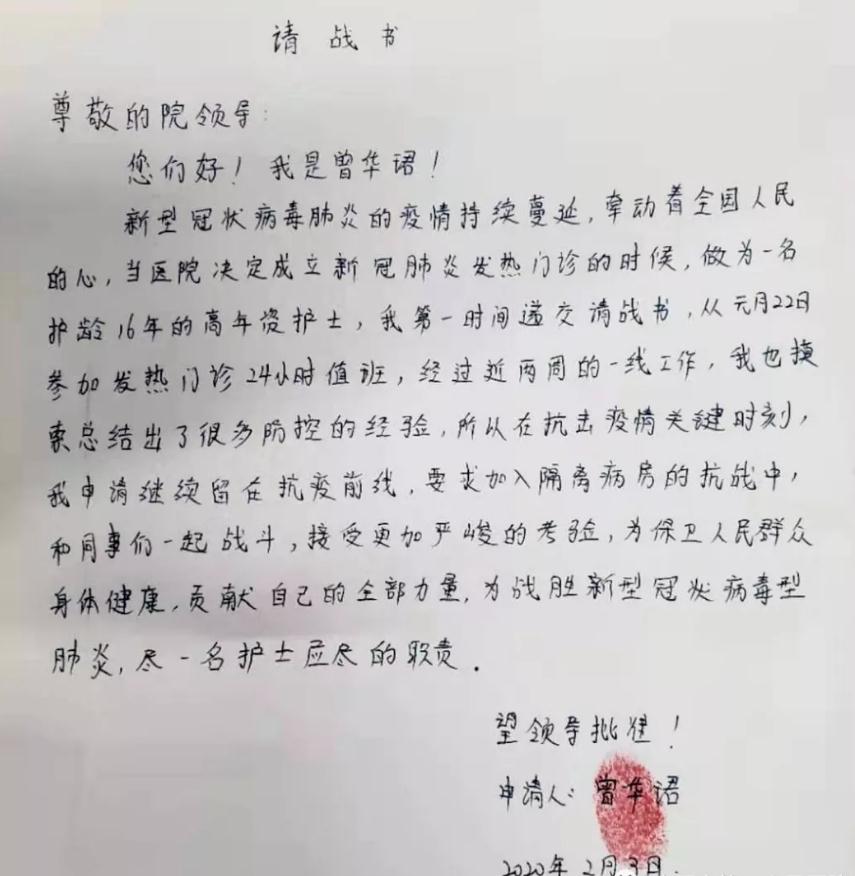 请战书
尊敬的院领导:
您们好!我是曾华珺!
新型冠状病毒肺炎的疫情持续蔓延,牵动着全国人民
的心,当医院决定成立新冠肺炎发热门诊的时候,做为一名
护龄16年的高年资护士,我第一时间递交请战书,从元月22日
参加发热门诊24小时值班,经过近两周的一线工作,我也摸
索总结出了很多防控的经验,所以在抗击疫情关键时刻,
我申请继续留在抗疫前线,要求加入隔离病房的抗战中,
和同事们一起战斗,接受更加严峻的考验,为保卫人民群众
身体健康,贡献自己的全部力量,为战胜新型冠状病毒型
肺炎,尽一名护士应尽的职责.
望领导批准!
申请人:曾华珺
2020年2月3日.